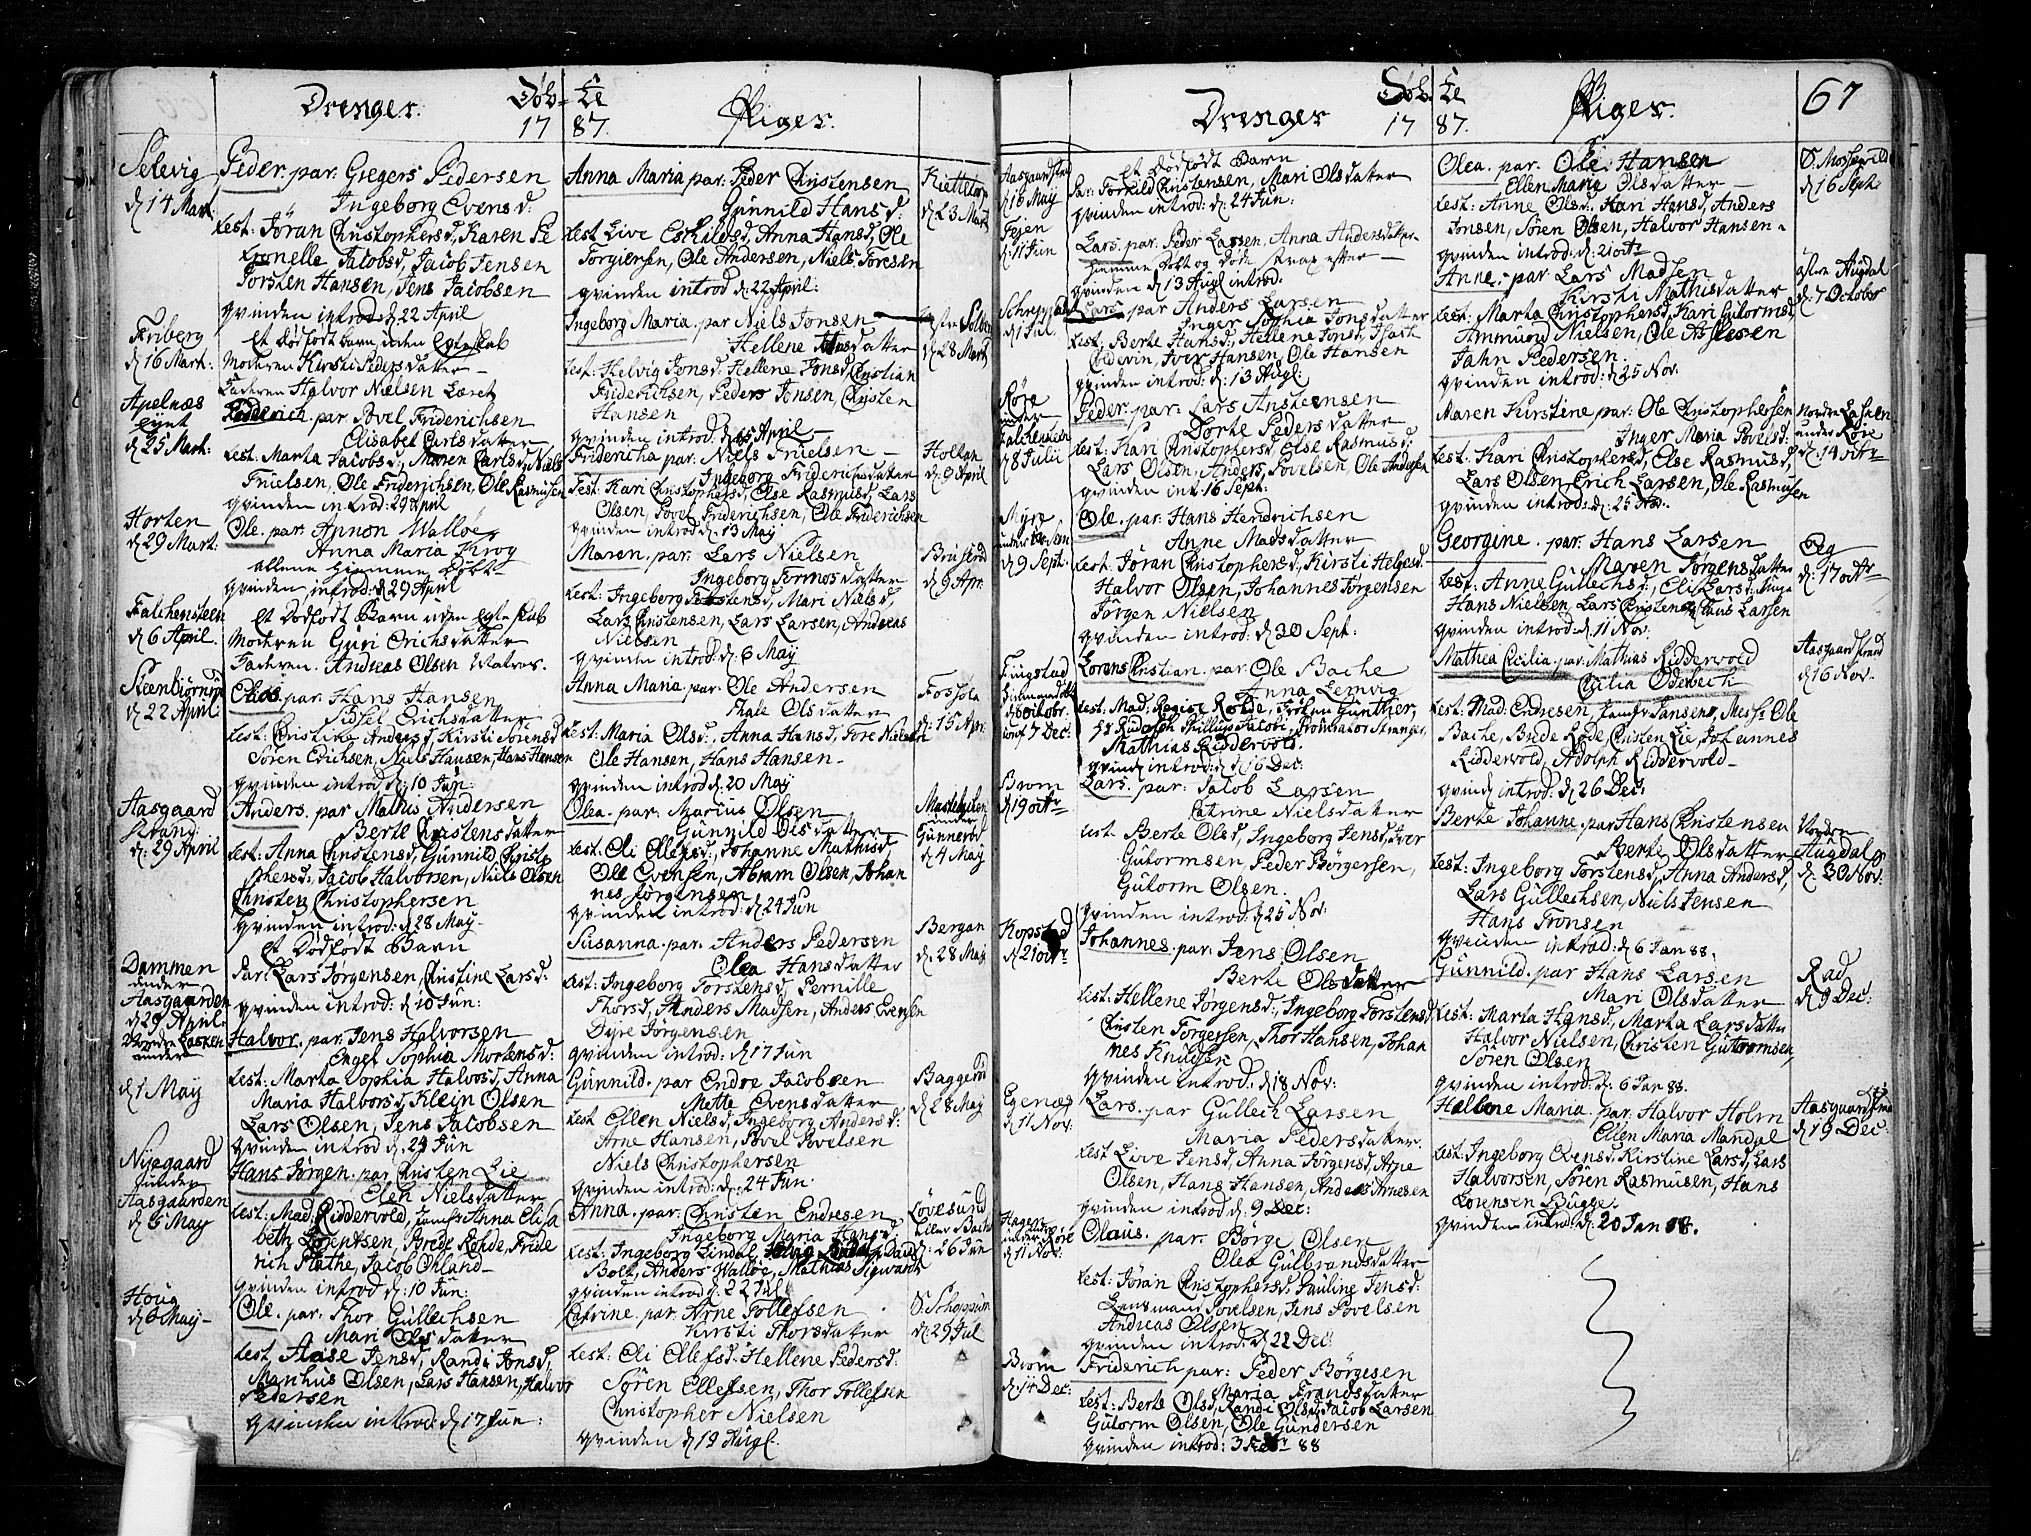 Drenger. Døb- te Piger.
17 87.
Selevig
d. 14 Mart:
Peder. par. Gregers Pedersen
Ingeborg Evensd:
test: Jöran Christophersd, Karen Pe
Pernelle Jacobsd, Jacob Jensen
Torsten Hansen, Jens Jacobsen
qvinden introd: d. 22 April
Friberg
d. 16 Mart:
et dödfödt barn uden Egteskab
Moderen Kirsti Pedersdatter
Faderen Halvor Nielsen
Apelnæs
d. 25 Mart:
Fridderich. par. Povel Friderichsen
Elisabet Carlsdatter
test: Marta Jacobsd, Maren Carlsd, Niels
Frielsen, Ole Friderichsen, Ole Rasmusen
qvinden introd: 29 April
Horten
d. 29 Mart:
Ole. par. Annon Walløe
Anna Maria Krog
allene hiemme døbt
qvinden introd: d. 29 April
Falchensteen
d. 6 April
et Dödfödt Barn uden Egteskab
Moderen Guri Erichsdatter
Faderen Andreas Olsen Matros.
Steenbjörnrød
d. 22 April
par: Hans Hansen
Sidsel Erichsdatter
test: Christine Andersd, Kirsti Sørensd
Sören Erichsen, Niels Hansen, Hans Hansen
qvinden introd: d. 10 Jun:
Aasgaard
strand.
d. 29 April
Anders. par Mathis Andersen
Berte Christensdatter
test: Anna Christensd, Gunnild Christo
phersd, Jacob Halvorsen, Niels Olsen
Christen Christophersen
qvinden introd: d. 28 May
Dammen
under
Aasgaarden
d. 29 April
et Dödfödt Barn
par. Lars Jørgensen, Christine Larsd:
qvinden introd: d. 10 Jun:
Nordre Lasken
under
d. 1 May
Halvor. par. Jens Halvorsen
Engel Sophia Mortensd:
test: Marta Sophia Halvorsd, Anna
Maria Halvorsd, Klein Olsen
Lars Olsen, Jens Jacobsen
qvinden introd d. 24 Jun
Nyegaard
under
Aasgaarden
d. 5 May
Hans Jörgen. par Christen Lie
Elen Nielsdatter
test: Mad: Riddervold, Jomfr: Anna Elisa
beth Lorentsen, Brede Rohde, Fride
rich Plathe, Jacob Ohland
qvinden introd: d. 10 Jun:
Houg
d. 6 May
Ole. par: Thor Gullechsen
Mari Olsdatter
test, Aase Jensd, Randi Jonsd,
Manhus Olsen, Lars Hansen, Halvor
Pedersen
qvinden introd: d. 17 Jun:
Anna Maria par: Peder Christensen
Gunnild Hansd:
test Live Eskildsd, Anna Hansd, Ole
Torgiersen, Ole Andersen, Niels Toresen
qvinden introd d. 22 April:
d. 23 Mart
Ingeborg Maria. par Niels Jonsen
Hellene datter
test: Helvig Jonsd, Hellene Jonsd, Christian
Friderichsen, Peders Jonsen, Christen
Hansen
qvinden introd: d. 15 April
d. 28 Mart
Fridericha par: Niels Frielsen
Ingeborg Friderichsdatter
test: Kari Christophersd, Else Rasmusd, Lars
Olsen, Povel Friderichsen, Ole Friderichsen
qvinden introd d. 13 May
Holtan
d. 9 April
Maren. par. Lars Nielsen
Ingeborg Tormosdatter
test: Ingeborg Torstensd, Mari Nielsd,
Lars Christensen, Lars Larsen, Andreas
Nielsen
qvinden introd: d. 6 May
Bruserød
d. 9 Apr.
Anna Maria. par: Ole Andersen
Thale Olsdatter
test: Maria Olsd, Anna Hansd, Tore Nielsen
Ole Hansen, Hans Hansen
qvinden introd: d. 20 May
Fossola
d: 15 Apr.
Olea. par. Marcus Olsen
Gunnild Olsdatter
test: Eli Ellefsd, Johanne Mathisd
Ole Evensen, Abram Olsen, Johan
nes Jörgensen
qvinden introd: d. 24 Jun
under
Gunnerød
d. 4 May
Susanna. par. Anders Pedersen
Olea Hansdatter
test: Ingeborg Torstensd, Pernille
Thorsd, Anders Madsen, Anders Evensen
Dyre Jörgensen
qvinden introd: d. 17 Jun
Bergan
d. 28 May
Gunnild. par Endre Jacobsen
Mette Evensdatter
test Ellen Nielsd, Ingeborg Andersd:
Arne Hansen, Povel Povelsen
Niels Christophersen
qvinden introd: d. 24 Jun
Baggerød
d. 28 May
Anna. par. Christen Endresen
Ingeborg Maria Hansd
test: Ingeborg Lindal,
Bolt, Anders Walløe, Mathias Sigwardt
qvinden introd: 22 Jul
Løvesund
d: 26 Jun
Catrine par: Arne Tollefsen
Kirsti Thorsdatter
test: Eli Ellefsd, Hellene Pedersd:
Sören Ellefsen, Thor Tollefsen
Christopher Nielsen
qvinden d. 19 Augl.
d. 29 Jul
Drenger Døb- te Piger. 67
17 87.
Aasgaardstrand
d. 16 May
et dödfödt Barn
Par: Torkild Christensen, Mari Olsdatter
qvinden introd: d. 24 Jun:
d. 11 Jun
Lars. par: Peder Larsen, Anna Andersdatter
hiemme døbt og døde strax efter
qvinden d. 13 Augl introd.
d. 1 Jul.
Lars. par Anders Larsen
Inger Sophia Jonsdatter
test, Berte Hansd, Hellene Jonsd, Isach
Iver Hansen, Ole Hansen
qvinden introd: d. 13 Augl:
Røre
under
Falchensteen
d. 8 Julii
Peder. par: Lars Anstensen
Dorte Pedersdatter
test: Kari Christophersd, Else Rasmusd:
Lars Olsen, Anders Povelsen, Ole Andersen
qvinden int: 16 Sept:
Myre
d. 9 Sept:
Ole. par: Hans Hendrichsen
Anne Madsdatter
test: Jöran Christophersd, Kirsti Helgesd.
Halvor Olsen, Johannes Jörgensen
Jörgen Nielsen
qvinden introd: d. 30 Sept:
Fingstad
hiemmedøbt
d. 6 octobr.
7 Dec:
Lorens Christian par Ole Bache
Anna Lemvig
test: Mad: Regise Rohde, Frøken Günther,
Sr Rudolph Phillip Jacobi, Procurator Stranger,
Mathias Riddervold.
qvind: introd: d. 16 Dec:
Brom
d. 19 octr
Lars. par: Jacob Larsen
Catrine Nielsdatter
test Berte Olsd, Ingeborg Jensd, Iver
Gutormsen, Peder Börgersen,
Gutorm Olsen.
qvinden introd: d. 25 Nov:
Kopstad
d. 21 octr
Johannes. par: Jens Olsen
Berte Olsdatter
test: Hellene Jörgensd, Ingeborg Torstensd,
Christen Torgersen, Thor Hansen, Johan
nes Knudsen
qvinden introd: d. 18 Nov:
Egenæs
d. 11 Nov:
Lars. par Gullech Larsen
Maria Pedersdatter.
test Live Jensd, Anna Jörgensd, Arne
Olsen, Hans Hansen, Anders Arnesen
qvinden introd: d. 9 Dec:
under Røre
d. 11 Nov:
Olaus. par: Börge Olsen
Olea Gulbrandsdatter
test: Jöran Christophersd, Pauline Jensd:
Lensmand Povelsen, Jens Povelsen
Andreas Olsen
qvinden introd: d. 22 Dec:
Brom
d. 14 Dec:
Friderich par: Peder Börgesen
Maria Frandsdatter
test: Berte Olsd, Randi Olsd, Jacob Larsen
Gutorm Olsen, Ole Gundersen
qvinden introd: 3 88
Olea. par. Ole Hansen
Ellen Maria Olsdatter
test: Anne Olsd, Kari Hansd, Anders
Jonsen, Sören Olsen, Halvor Hansen
qvinden introd: d. 21 octr
d. 16 Sept:
Anne. par Lars Madsen
Kirsti Mathisdatter
test: Marta Christophersd, Kari Gutormsd,
Ammund Nielsen, Ole Aslesen
Jahn Pedersen.
qvinden introd: d. 25 Nov.
Augdal
d. 7 October
Maren Kirstine par: Ole Christophersen
Inger Maria Povelsd:
test: Kari Christophersd, Else Rasmusd,
Lars Olsen, Erich Larsen, Ole Rasmusen
qvinden introd: d. 25 Nov.
Nordre Lasken
under Røre
d. 14 octr
Georgine. par: Hans Larsen
Maren Jörgensdatter
test: Anne Gullechsd, Eli Larsd,
Hans Nielsen, Lars Christensen, Claus Larsen
qvinden introd: d. 11 Nov.
d. 17 octr
Mathea Cecilia. par: Mathias Riddervold
Cicilia Odebech
test: Mad: Endresen, Jomfr Jansens, Messr Ole
Bache, Brede Rode, Christen Lie, Johannes
Riddervold, Adolph Riddervold
qvind: introd: d. 26 Dec:
Aasgaardstrand
d. 16 Nov.
Berte Johanne. par Hans Christensen
Berte Olsdatter
test: Ingeborg Torstensd, Anna Andersd,
Lars Gullechsen, Niels Jensen
Hans Tronsen
qvinden introd: d. 6 Jan 88.
Norden
Augdal
d. 30 Nov:
Gunnild. par Hans Larsen
Mari Olsdatter
test: Marta Hansd, Marta Larsdatter
Halvor Nielsen, Christen Gutormsen,
Sören Olsen
qvinden introd: d. 6 Jan 88.
Rad
d. 9 Dec:
Hellene Maria. par. Halvor Holm
Ellen Maria Mandal
test: Ingeborg Evensd, Kirstine Larsd, Lars
Halvorsen, Sören Rasmusen, Hans
Lorensen Bugge.
qvinden introd: d. 20 Jan 88.
Aasgaardstrand
d. 19 Dec: